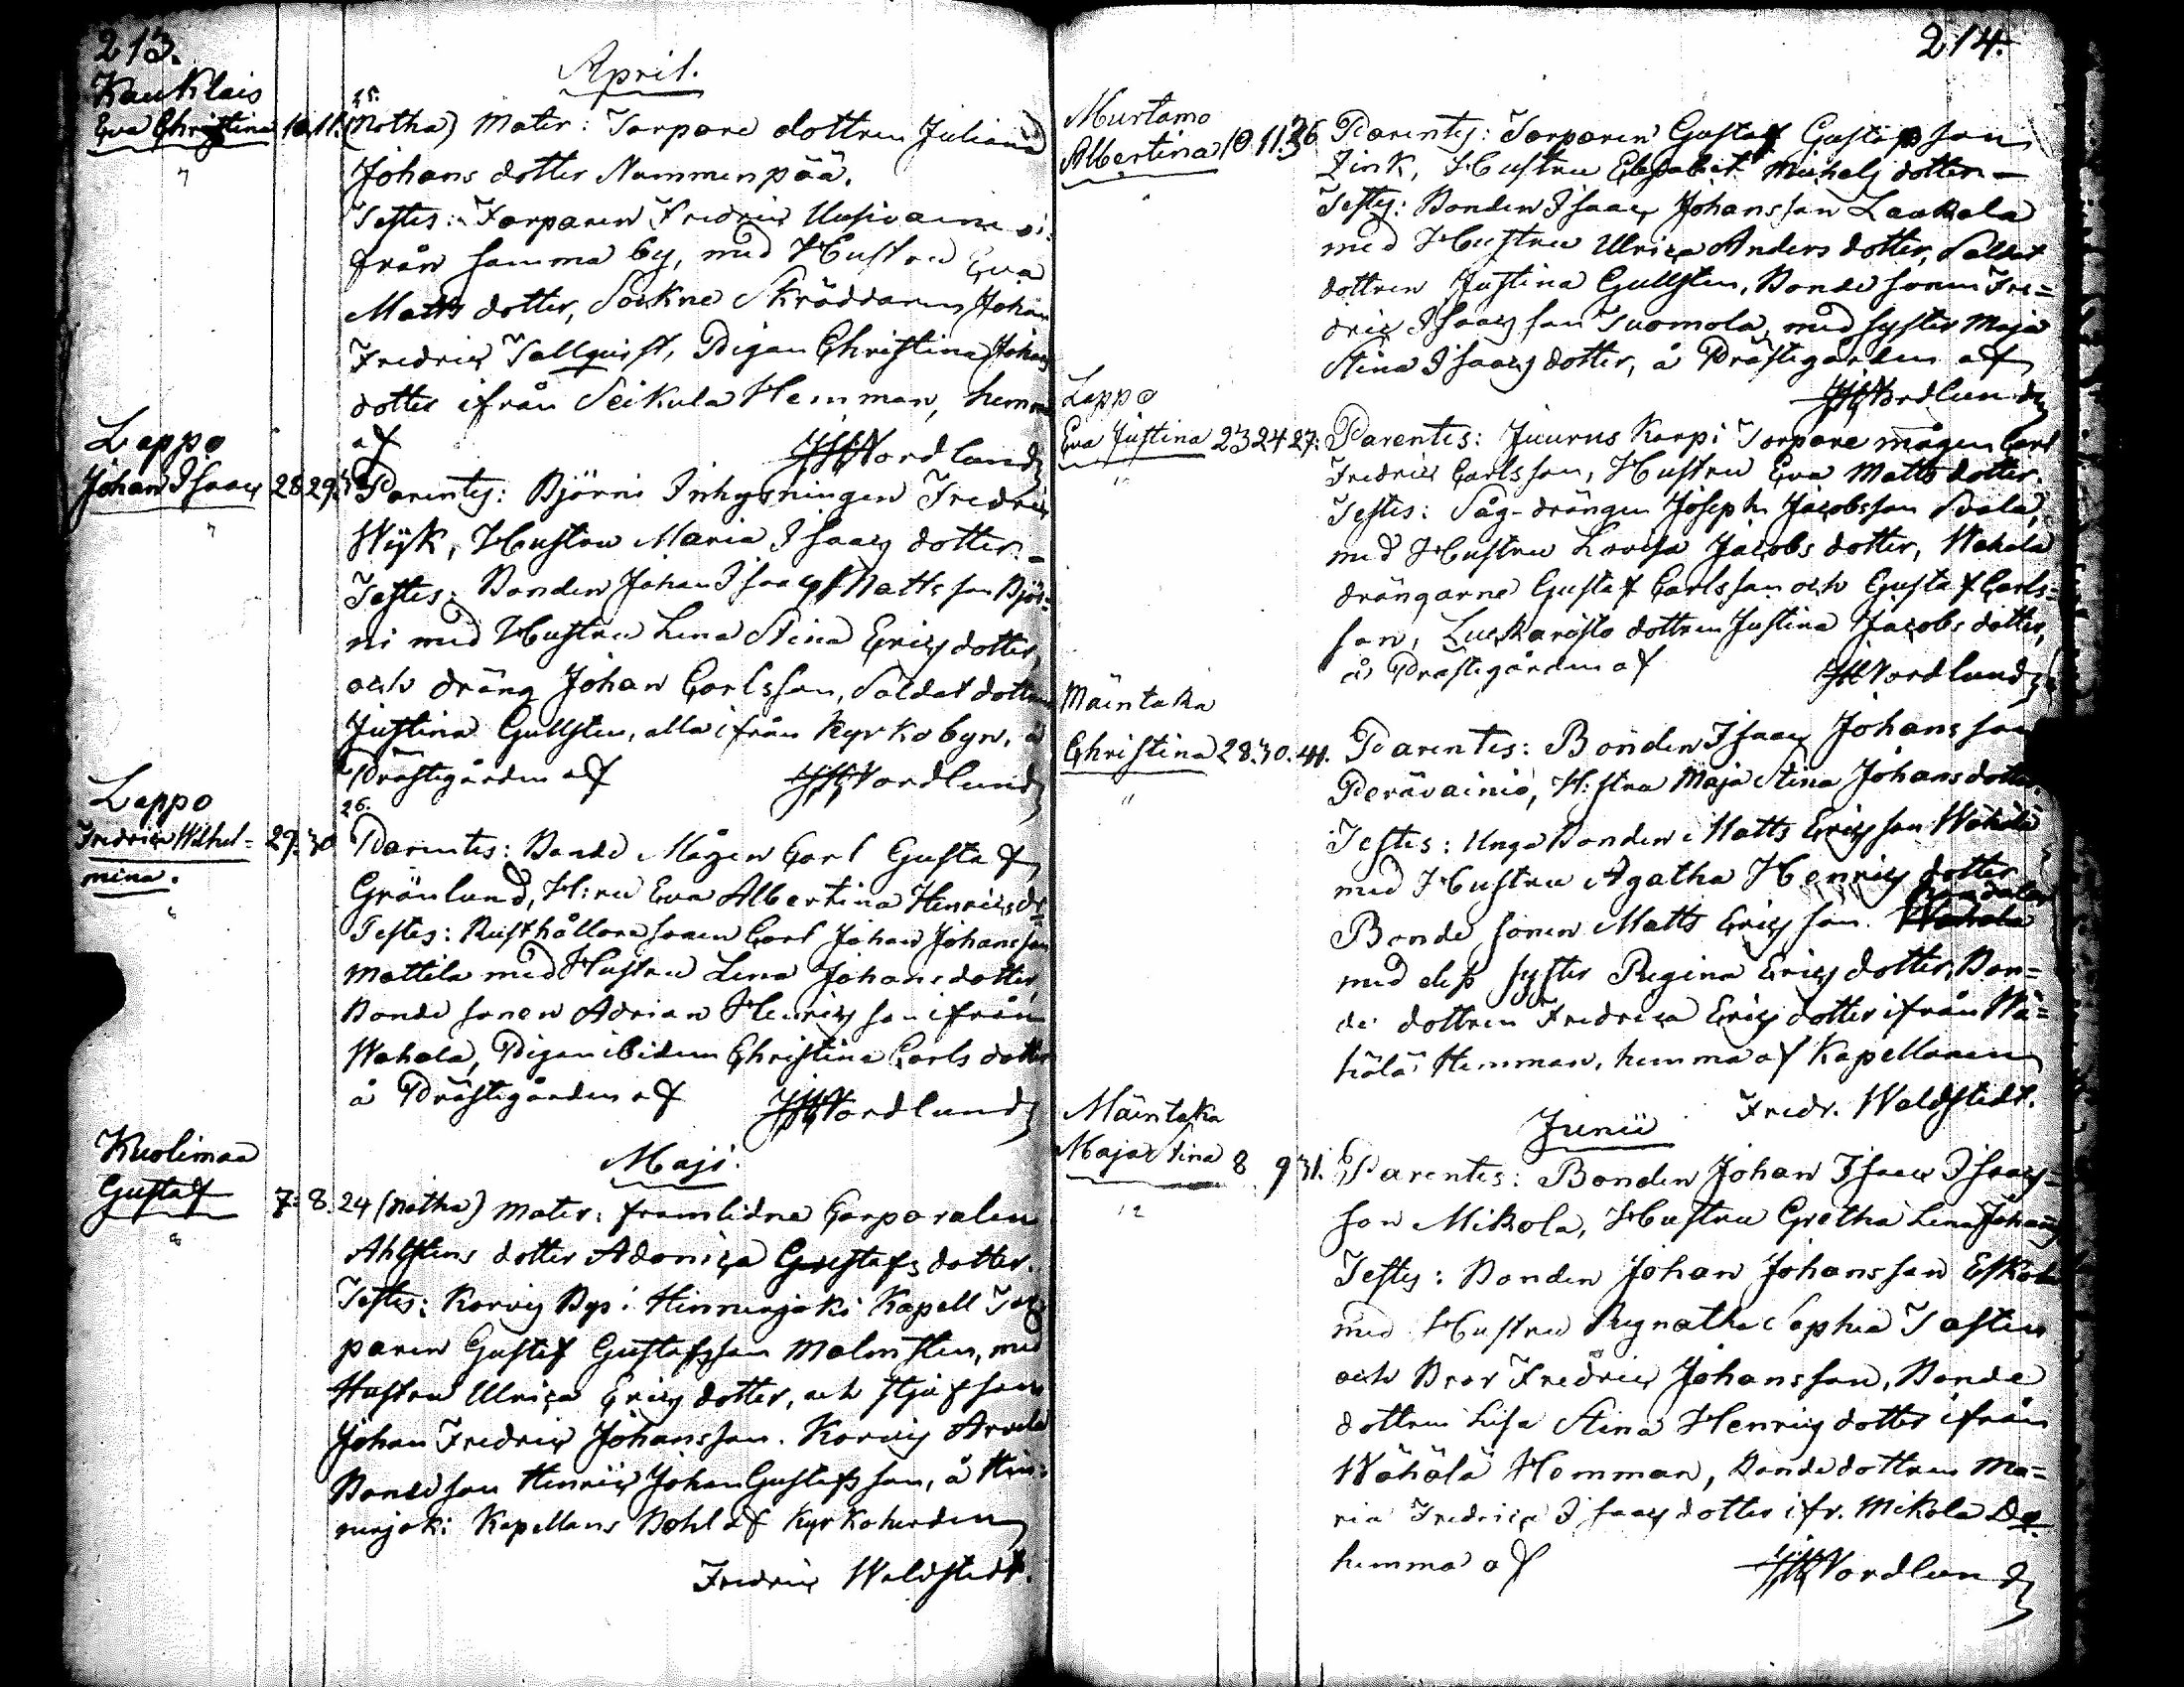 213.
April.
Kauklais
Eva Christina 10. 11. 25. (Notha) Mater: Torpare dottren Juliana
Johans dotter Nummenpää.
Testes: Torparen Fredric Uusivainio i
från samma by, med Hustru Eva
Matts dotter, Sockne Skräddaren Johan
Fredric Tallqvist, Pigan Christina Johans
dotter ifrån Seikula Hemman, hemma
af JHNordlund
Leppo
Johan Isaac 28 29. Parentes: Björni Inhysningen Fredric
Wijk, Hustru Maria Isaacs dotter.
Testes: Bonden Johan Isaac Mattsson Björ-
ni med Hustru Lena Stina Erics dotter,
och dräng Johan Carlsson, Soldat dottren
Justina Gullsten, alla ifrån Kyrkobyn, å
Prästegården af JHNordlund
Leppo
Fredrica Wilhel= 29. 30 26. Parentes: Bonde Mågen Carl Gustaf
mina.
Grönlund, H:ru Eva Albertina Henricsdr
Testes: Rusthållare sonen Carl Johan Johansson
Mattila med Hustru Lena Johans dotter,
Bonde sonen Adrian Henricsson ifrån
Wahala, Pigan ibidem Christina Carls dotter
å Prästegården af JHNordlund
Maji.
Kuolimaa
Gustaf 7. 8. 24 (Notha) Mater: framlidne Corporalen
Ahlstens dotter Adonica Gustafs dotter.
Testes: Korvis By i Hinnerjoki Kapell Tor
paren Gustaf Gustafsson Malmsten, med
Hustru Ulrica Erics dotter, och stjufson
Johan Fredric Johansson. Korvis Arvela
Bondeson Henric Johan Gustafsson, å Hin=
nerjoki Kapellans Bohl af Kyrkoherden
Fredric Waldstedt.
214.
Murtamo
Albertina 10 11. 36 Parentes: Torparen Gustaf Gustafsson
Zink, Hustru Elisabet Michels dotter
Testes: Bonden Isaac Johansson Laakola
med Hustru Ulrica Anders dotter, Soldat
dottren Justina Gullsten, Bonde sonen Fre=
dric Isaacsson Tuomola, med syster Maja
Stina Isaacs dotter, å Prästegården af
JHNordlund
Leppo
Eva Justina 23 24 27. Parentes: Juurus Karpi Torpare mågen Carl
Fredric Carlsson, Hustru Eva Matts dotter.
Testes: Såg-drängen Joseph Jacobsson
med Hustru Lovisa Jacobs dotter, Wahala
drängarne Gustaf Carlsson och Gustaf Carls=
son, dottren Justina Jacobs dotter,
å Prästegården af JHNordlund
Mäntaka
Christina 28. 30. 41. Parentes: Bonden Isaac Johansson
Perävainio, H:stru Maja Stina Johansdotter.
Testes: Unga Bonden Matts Ericsson Wähälä
med Hustru Agatha Henrics dotter
Bonde sonen Matts Ericsson.
med dess syster Regina Erics dotter, Bon=
de dottren Fredrica Erics dotter ifrån Wä=
hälä Hemman, hemma af Kapellanen
Fredr. Waldstedt.
Junii
Mäntaka
Maja Stina 8 9 31. Parentes: Bonden Johan Isaac Isaacs-
son Mikola, Hustru Gretha Lena Johans
Testes: Bonden Johan Johansson Eskola
med Hustru Regnatha Sophia Tasten
och Bror Fredric Johansson, Bonde
dottren Lisa Stina Henrics dotter ifrån
Wähälä Hemman, Bonde dottren Ma=
ria Fredrica Isaacs dotter ifr. Mikola Do.
hemma af JHNordlund